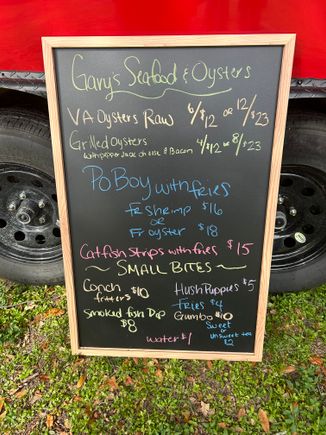 Gary's Seafood & Oysters
VA Oysters Raw 6/$12 or 12/$23
Grilled Oysters 4/$12 or 8/$23
with pepper Jack cheese & Bacon
Po Boy with fries
Fr shrimp $16
or
Fr oyster $18
Catfish Strips with fries $15
~ SMALL BITES ~
Conch fritters $10
Smoked fish Dip $8
Hush Puppies $5
fries $4
Gumbo $10
Sweet or unsweet tea $2
water $1